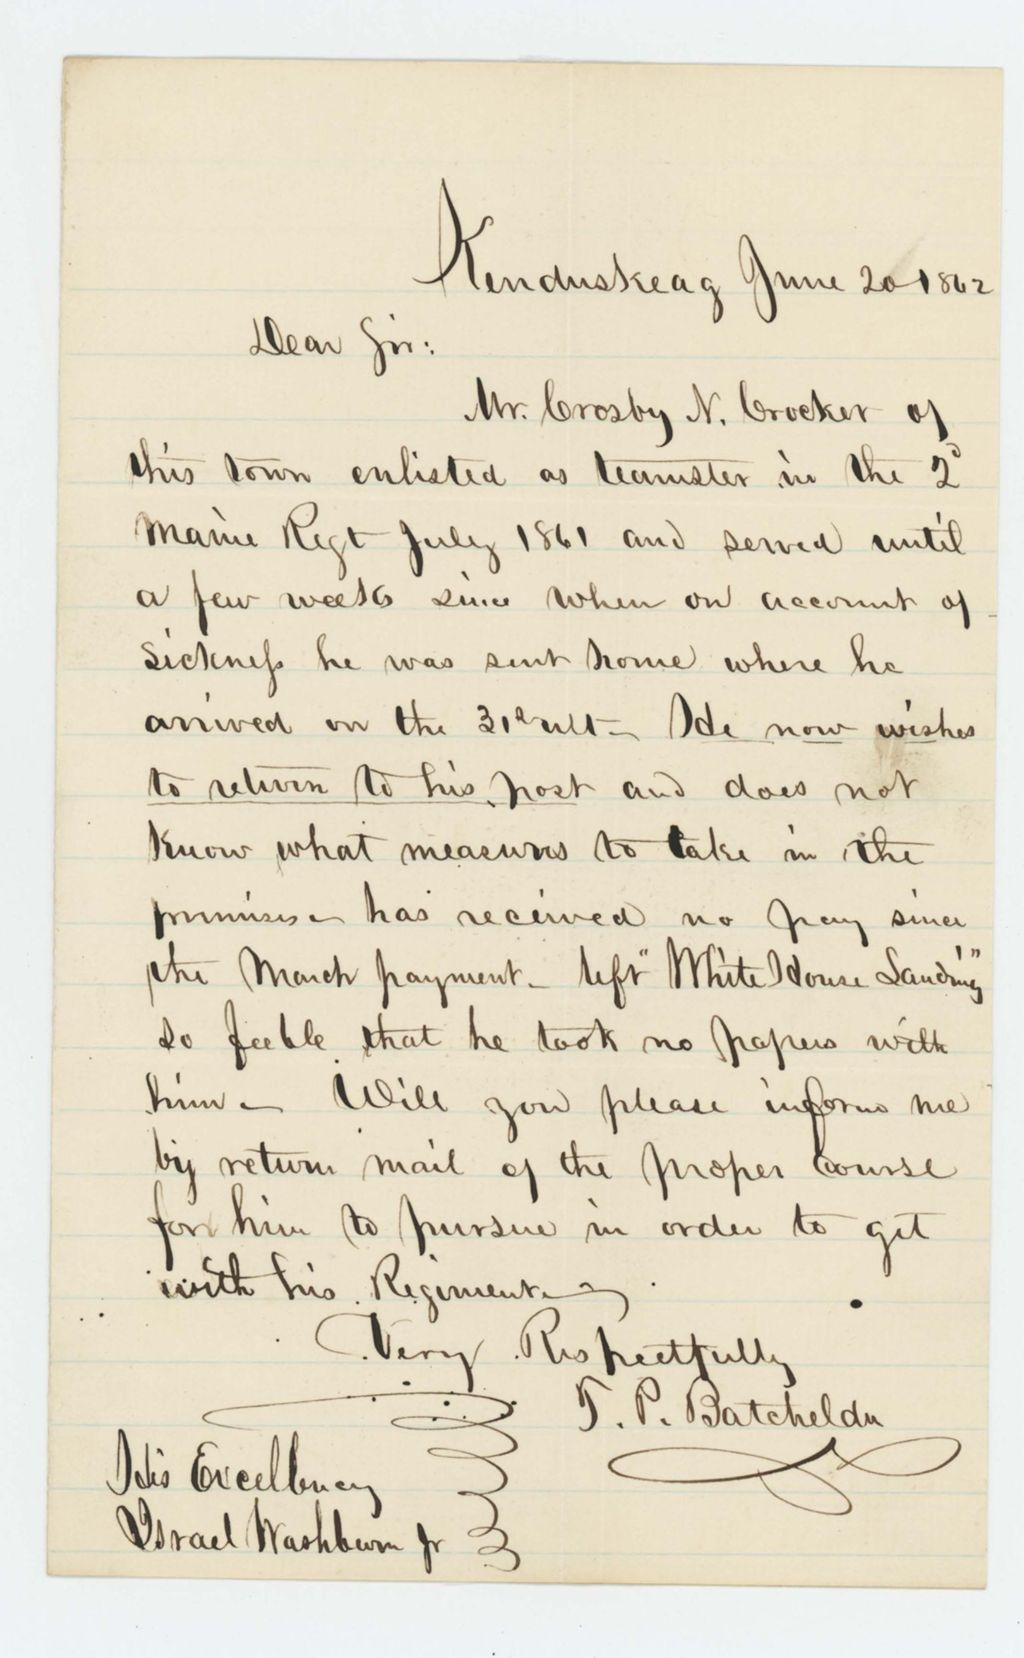 Kenduskeag June 20 1862
Dear Sir:
Mr. Crosby N. Crocker of
this town enlisted as teamster in the 2d
Maine Regt July 1861 and served until
a few weeks since when on account of
sickness he was sent home where he
arrived on the 31st ult - He now wishes
to return to his post and does not
know what measures to take in the
premises - has received no pay since
the March payment - left "White House Landing"
so feeble that he took no papers with
him - Will you please inform me
by return mail of the proper course
for him to pursue in order to get
with his Regiment -
Very Respectfully
T. P. Batchelder
His Excellency
Israel Washburn Jr